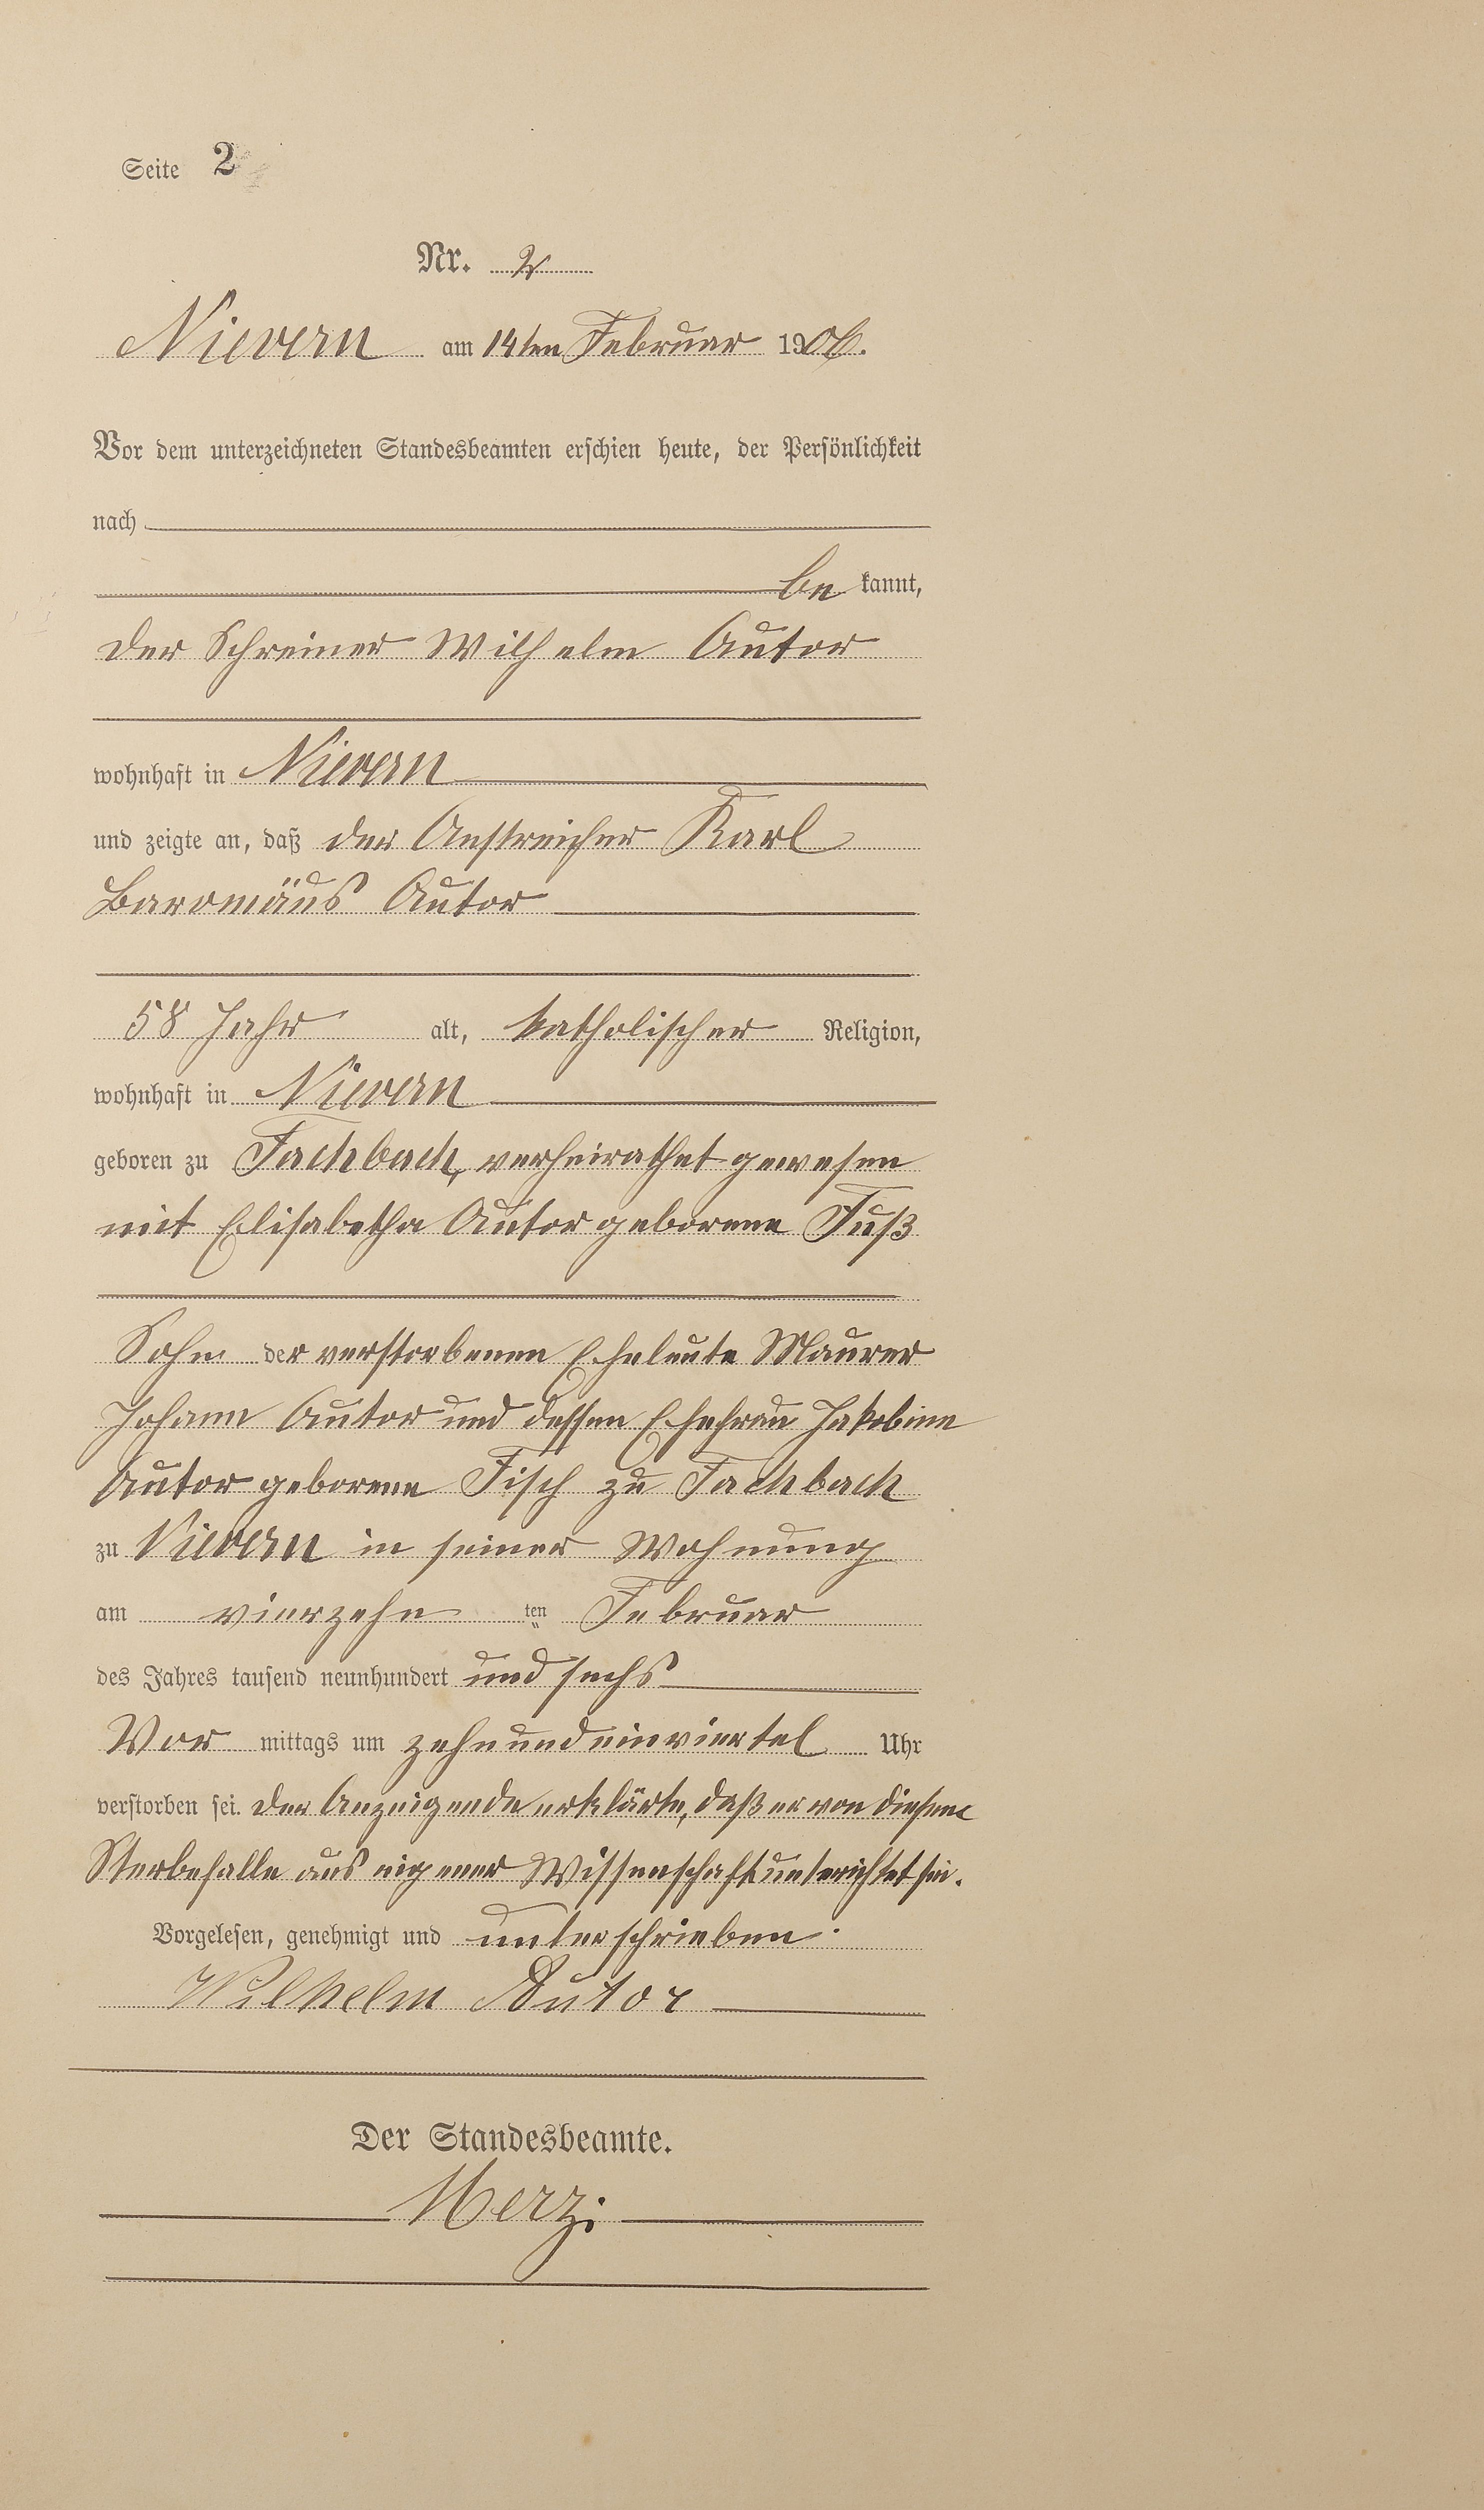 Seite 2
Nr. 2
Nievern am 14ten Februar 1906.
Vor dem unterzeichneten Standesbeamten erschien heute, der Persönlichkeit
nach
be kannt,
der Schreiner Wilhelm Autor
wohnhaft in Nievern
und zeigte an, daß der Anstreicher Karl
Baromäus Autor
58 Jahr alt, katholischer Religion,
wohnhaft in Nievern
geboren zu Fachbach, verheirathet gewesen
mit Elisabetha Autor geborene Fuß
Sohn der verstorbenen Eheleute Maurer
Johann Autor und dessen Ehefrau Jakobine
Autor geborene Fisch zu Fachbach
zu Nievern in seiner Wohnung
am vierzehn ten Februar
des Jahres tausend neunhundert und sechs
Vor mittags um zehnundeinviertel Uhr
verstorben sei. Der Anzeigende erklärte, daß er von diesem
Sterbefalle aus eigener Wissenschaft unterichtet sei.
Vorgelesen, genehmigt und unterschrieben.
Wilhelm Autor
Der Standesbeamte.
Merz